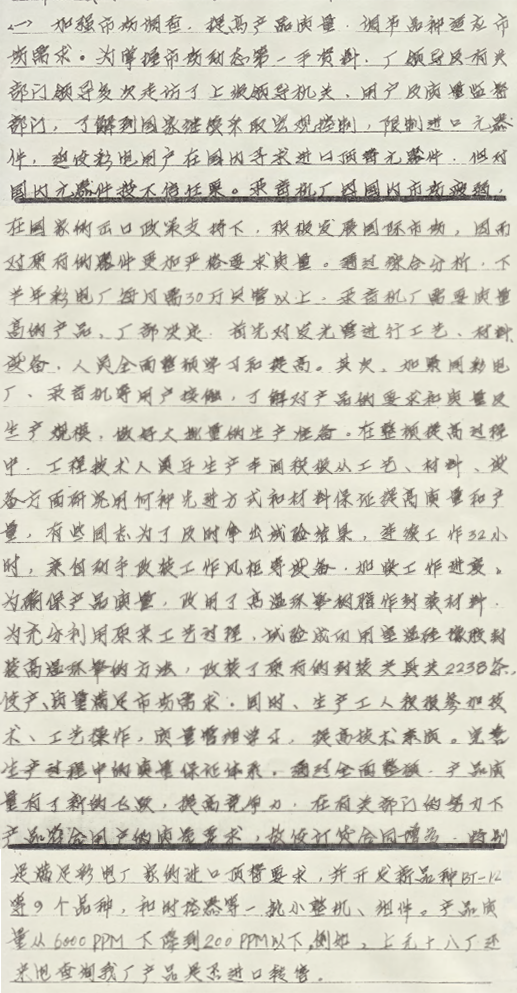 (一) 加强市场调查,提高产品质量,调节品种适应市
场需求。为掌握市场动态第一手资料,厂领导及有关
部门领导多次走访了上级领导机关、用户及质量监督
部门,了解到国家继续采取宏观控制,限制进口元器
件,迫使彩电用户在国内寻求进口顶替元器件,但对
国内元器件技不信任果。录音机厂因国内市场疲软,
在国家的出口政策支持下,积极发展国际市场,因而
对原有的器件更加严格要求质量。通过综合分析,下
半年彩电厂每月需30万只管以上,录音机厂需要质量
高的产品。厂部决定,首先对发光管进行工艺、材料、
设备、人员全面整顿学习和提高。其次,加紧同彩电
厂、录音机等用户接触,了解对产品的要求和质量及
生产规模,做好大批量的生产准备。在整顿提高过程
中,工程技术人员与生产车间积极从工艺、材料、设
备方面研究用何种先进方式和材料保证提高质量和产
量,有些同志为了及时拿出试验结果,连续工作32小
时,亲自动手改装工作风柜等设备,加快工作进度。
为确保产品质量,改用了高温环氧树脂作封装材料,
为充分利用原来工艺过程,试验成功用室温硅橡胶封
装高温环氧的方法,改装了原有的封装夹具共2238条,
使产、质量满足市场需求。同时、生产工人积极参加技
术、工艺操作,质量管理学习,提高技术素质。完善
生产过程中的质量保证体系。通过全面整顿,产品质
量有了新的飞跃,提高竞争力,在有关部门的努力下
产品符合用户的质量要求,故使订货合同增多,特别
是满足彩电厂家的进口顶替要求,并开发新品种BT-12
等9个品种,和时控器等一批小整机、组件。产品质
量从6000PPM下降到200PPM以下,例如,上无十八厂还
来电查询我厂产品是否进口转售.